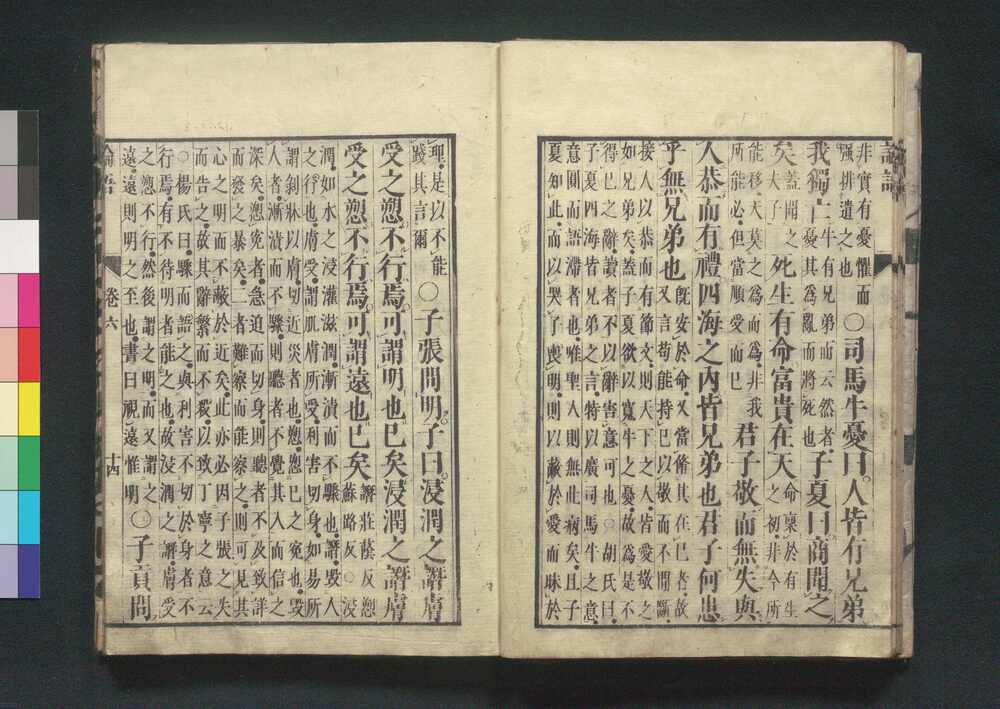 論語
非實有憂懼而
強排遣之也
○司馬牛憂曰。人皆有兄弟
我獨亡
牛有兄弟而云然者
憂其為亂而將死也
子夏曰商聞之
矣
蓋聞之
夫子
死生有命富貴在天
命稟於有生
之初非今所
能移天莫之為而為非我
所能必但當順受而已
君子敬而無失與
人恭而有禮四海之內皆兄弟也君子何患
乎無兄弟也
既安於命又當脩其在己者故
又言苟能持己以敬而不間斷
接人以恭而有節文則天下之人皆愛敬之
如兄弟矣蓋子夏欲以寬牛之憂故為是不
得已之辭讀者不以辭害意可也○胡氏曰
子夏四海皆兄弟之言特以廣司馬牛之意
意圓而語滯者也唯聖人則無此病矣且子
夏知此而以哭子喪明則以蔽於愛而昧於
理是以不能
踐其言爾
○子張問明。子曰。浸潤之譖膚
受之愬不行焉。可謂明也已矣浸潤之譖膚
受之愬不行焉。可謂遠也已矣
譖莊蔭反愬
蘇路反○浸
潤如水之浸灌滋潤漸漬而不驟也譖毀人
之行也膚受謂肌膚所受利害切身如易所
謂剝牀以膚切近災者也愬愬己之冤也毀
人者漸漬而不驟則聽者不覺其入而信之
深矣愬冤者急迫而切身則聽者不及致詳
而發之暴矣二者難察而能察之則可見其
心之明而不蔽於近矣此亦必因子張之失
而告之故其辭繁而不殺以致丁寧之意云
○楊氏曰驟而語之與利害不切於身者不
行焉有不待明者能之也故浸潤之譖膚受
之愬不行然後謂之明而又謂之
遠遠則明之至也書曰視遠惟明
○子貢問
論語 卷六 十四